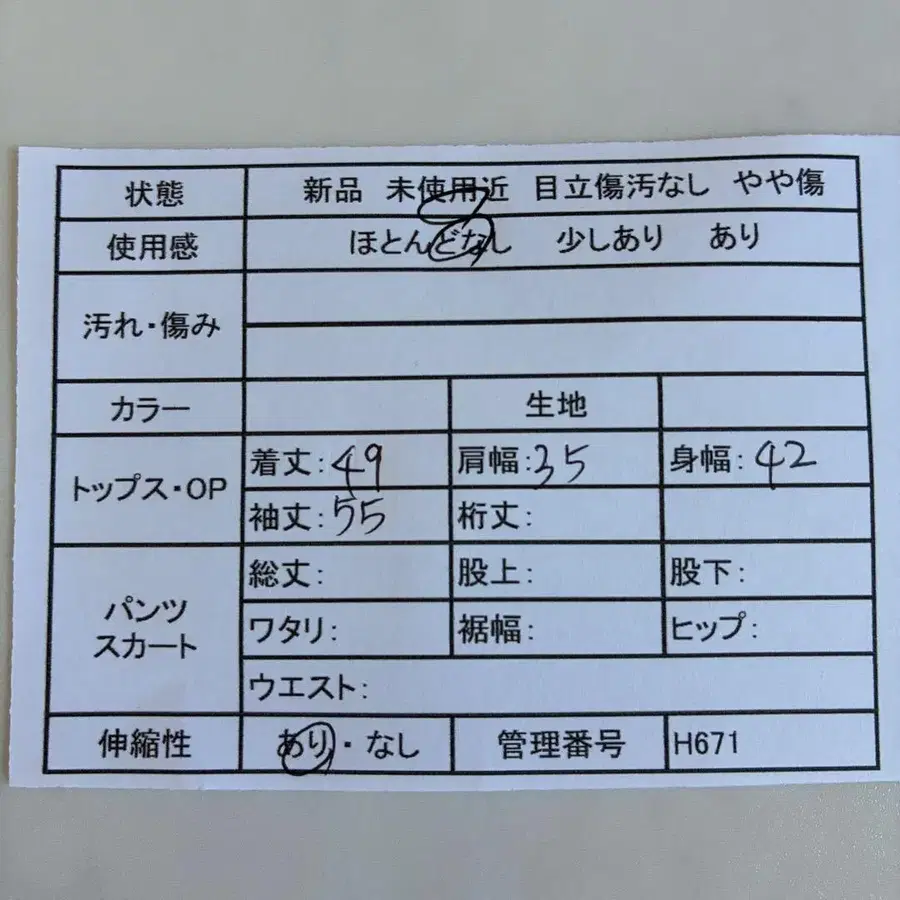 状態 新品 未使用近 目立傷汚なし やや傷
使用感 ほとんどなし 少しあり あり
汚れ・傷み
カラー 生地
トップス・OP 着丈:49 肩幅:35 身幅:42
袖丈:55 裄丈:
パンツ スカート 総丈: 股上: 股下:
ワタリ: 裾幅: ヒップ:
ウエスト:
伸縮性 あり・なし 管理番号 H671